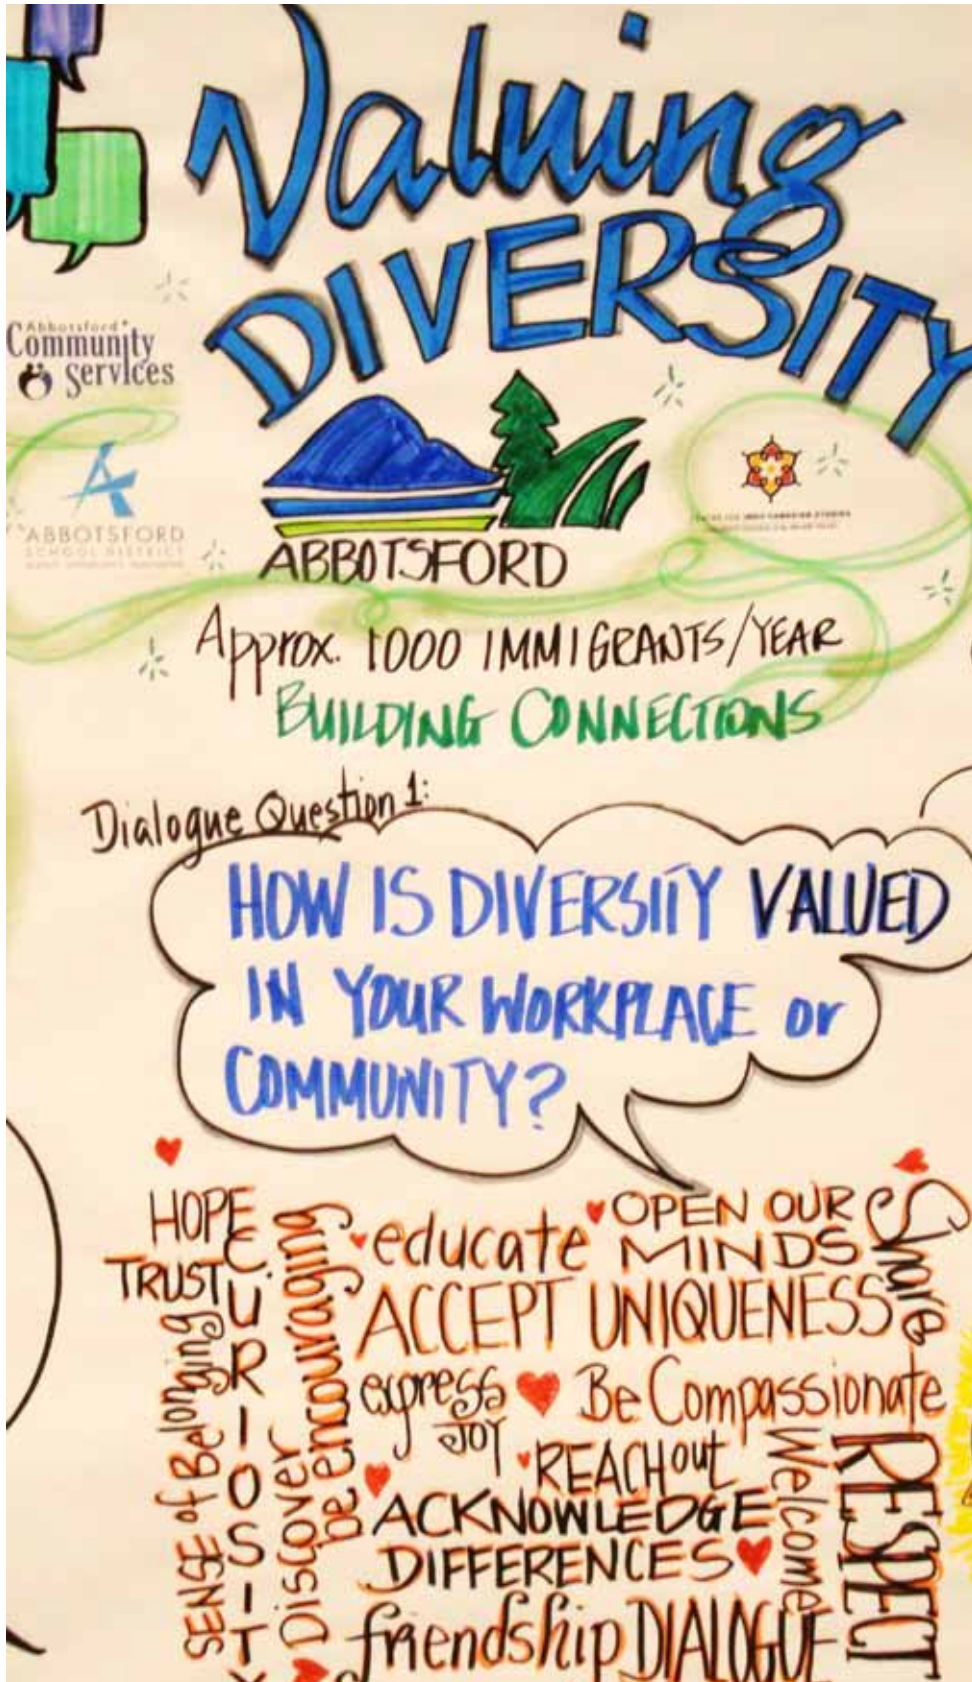 Valuing
DIVERSITY
Abbotsford
Community
Services
ABBOTSFORD
SCHOOL DISTRICT
ABBOTSFORD
Approx. 1000 IMMIGRANTS/YEAR
BUILDING CONNECTIONS
Dialogue Question 1:
HOW IS DIVERSITY VALUED
IN YOUR WORKPLACE or
COMMUNITY?
HOPE
TRUST
SENSE of Belonging
CURIOSITY
Discover
be encouraging
educate
OPEN OUR
MINDS
Share
ACCEPT UNIQUENESS
express
JOY
Be Compassionate
REACH out
Welcome
RESPECT
ACKNOWLEDGE
DIFFERENCES
friendship DIALOGUE